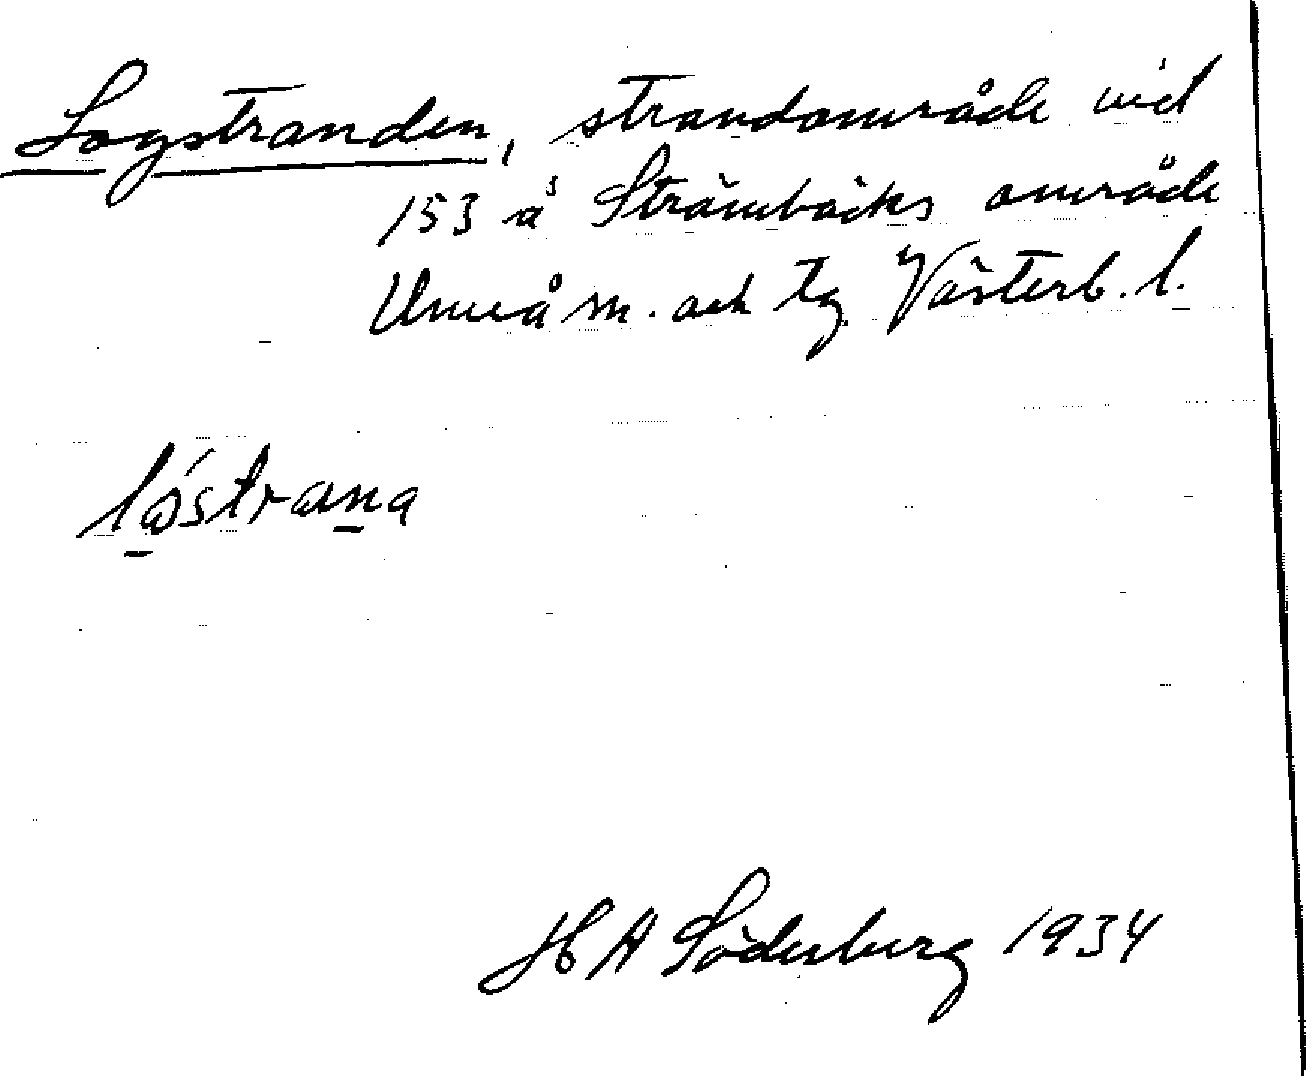 Logstranden, strandområde vid
153 å Strömbäcks område
Umeå m. och tg Västerb. l.
H A Söderberg 1934